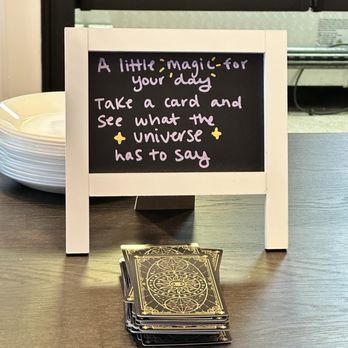 A little magic for
your day
Take a card and
see what the
universe
has to say